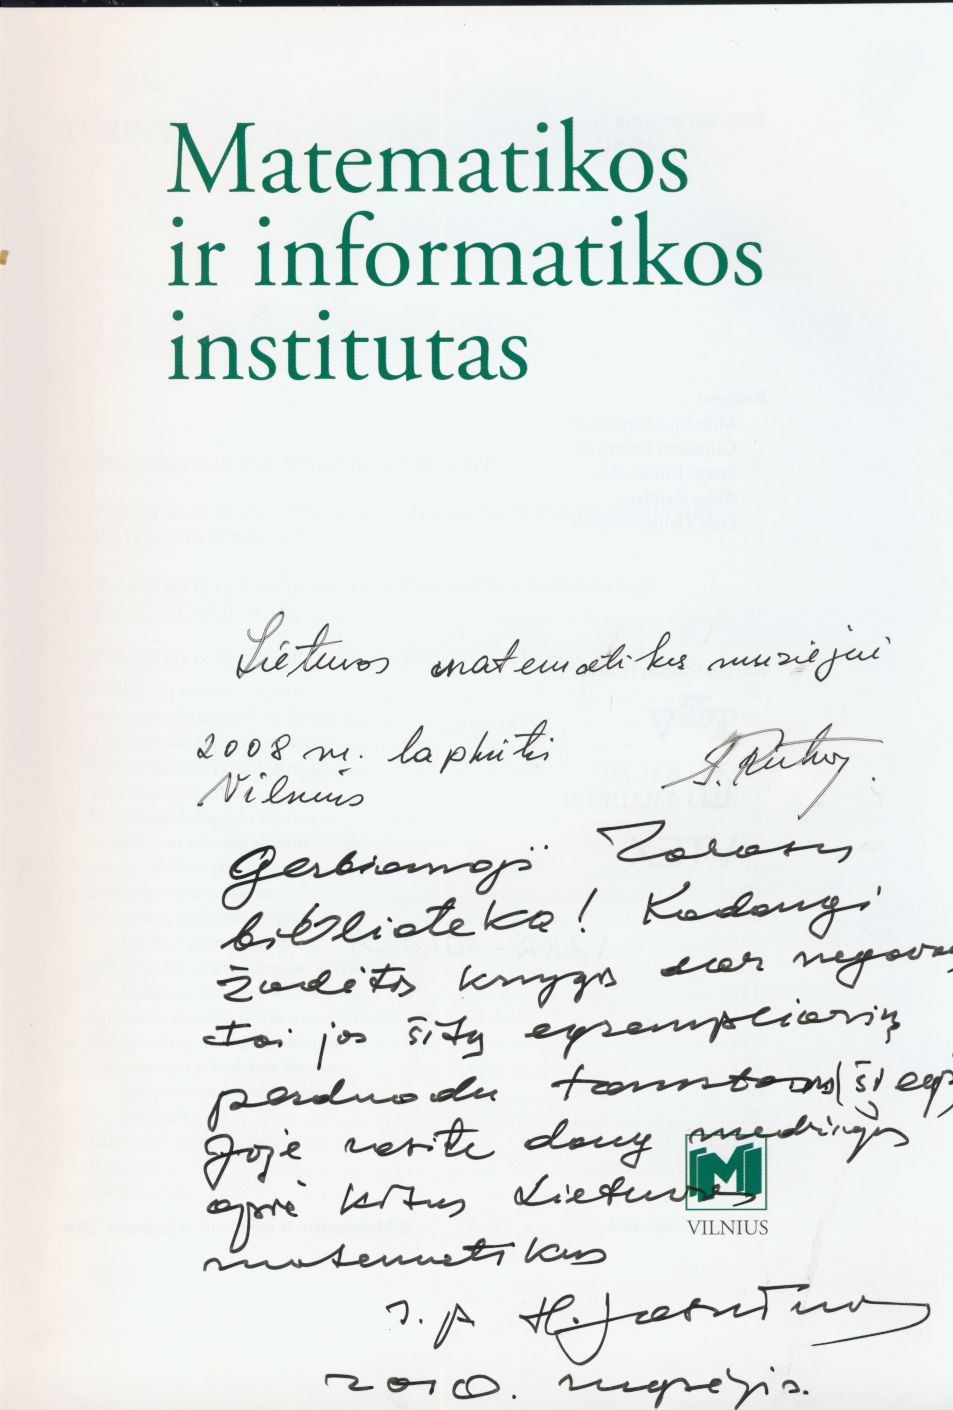 Matematikos
ir informatikos
institutas
Lietuvos matematikos muziejui
2008 m. lapkritis
Vilnius
Gerbiamoji Zarasų
biblioteka! Kadangi
žadėtos knygos dar negavau
tai jos šitą egzempliorių
perduodu tamstoms (šį egz)
Joje rasite daug medžiagos
apie kitus Lietuvos
matematikus
VILNIUS
J. p H. Jasiūnas
2010. rugsėjis.